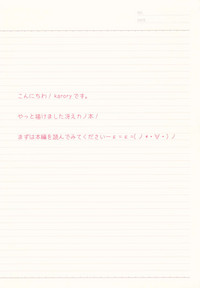 こんにちわ! kanoryです。
やっと描けました冴えカノ本!
まずは本編を読んでみてください